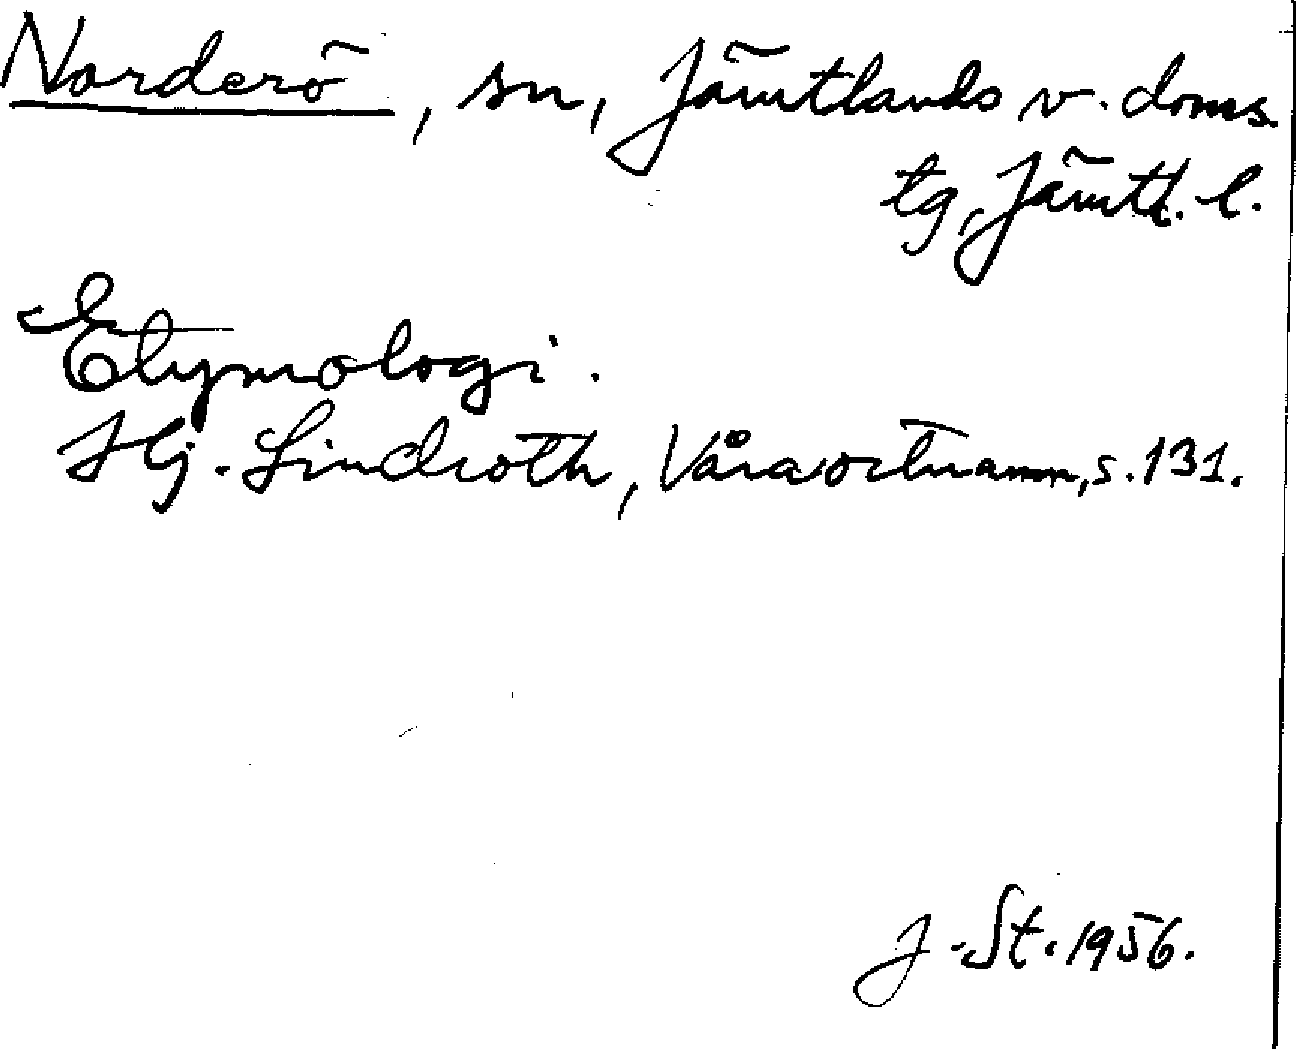 Norderö, sn, Jämtlands v. doms.
tg, Jämtl. l.
Etymologi.
Hj. Lindroth, Våra ortnamn, s. 131.
J. St. 1956.